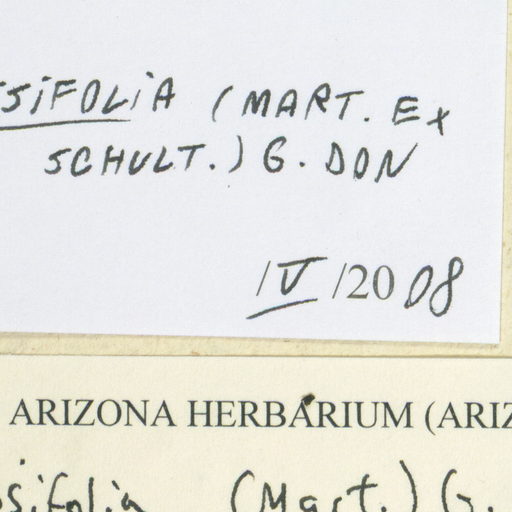 SIFOLIA (MART. Ex
SCHULT.) G. DON
/V/2008
ARIZONA HERBARIUM (ARIZ
sifolia (Mart.) G.